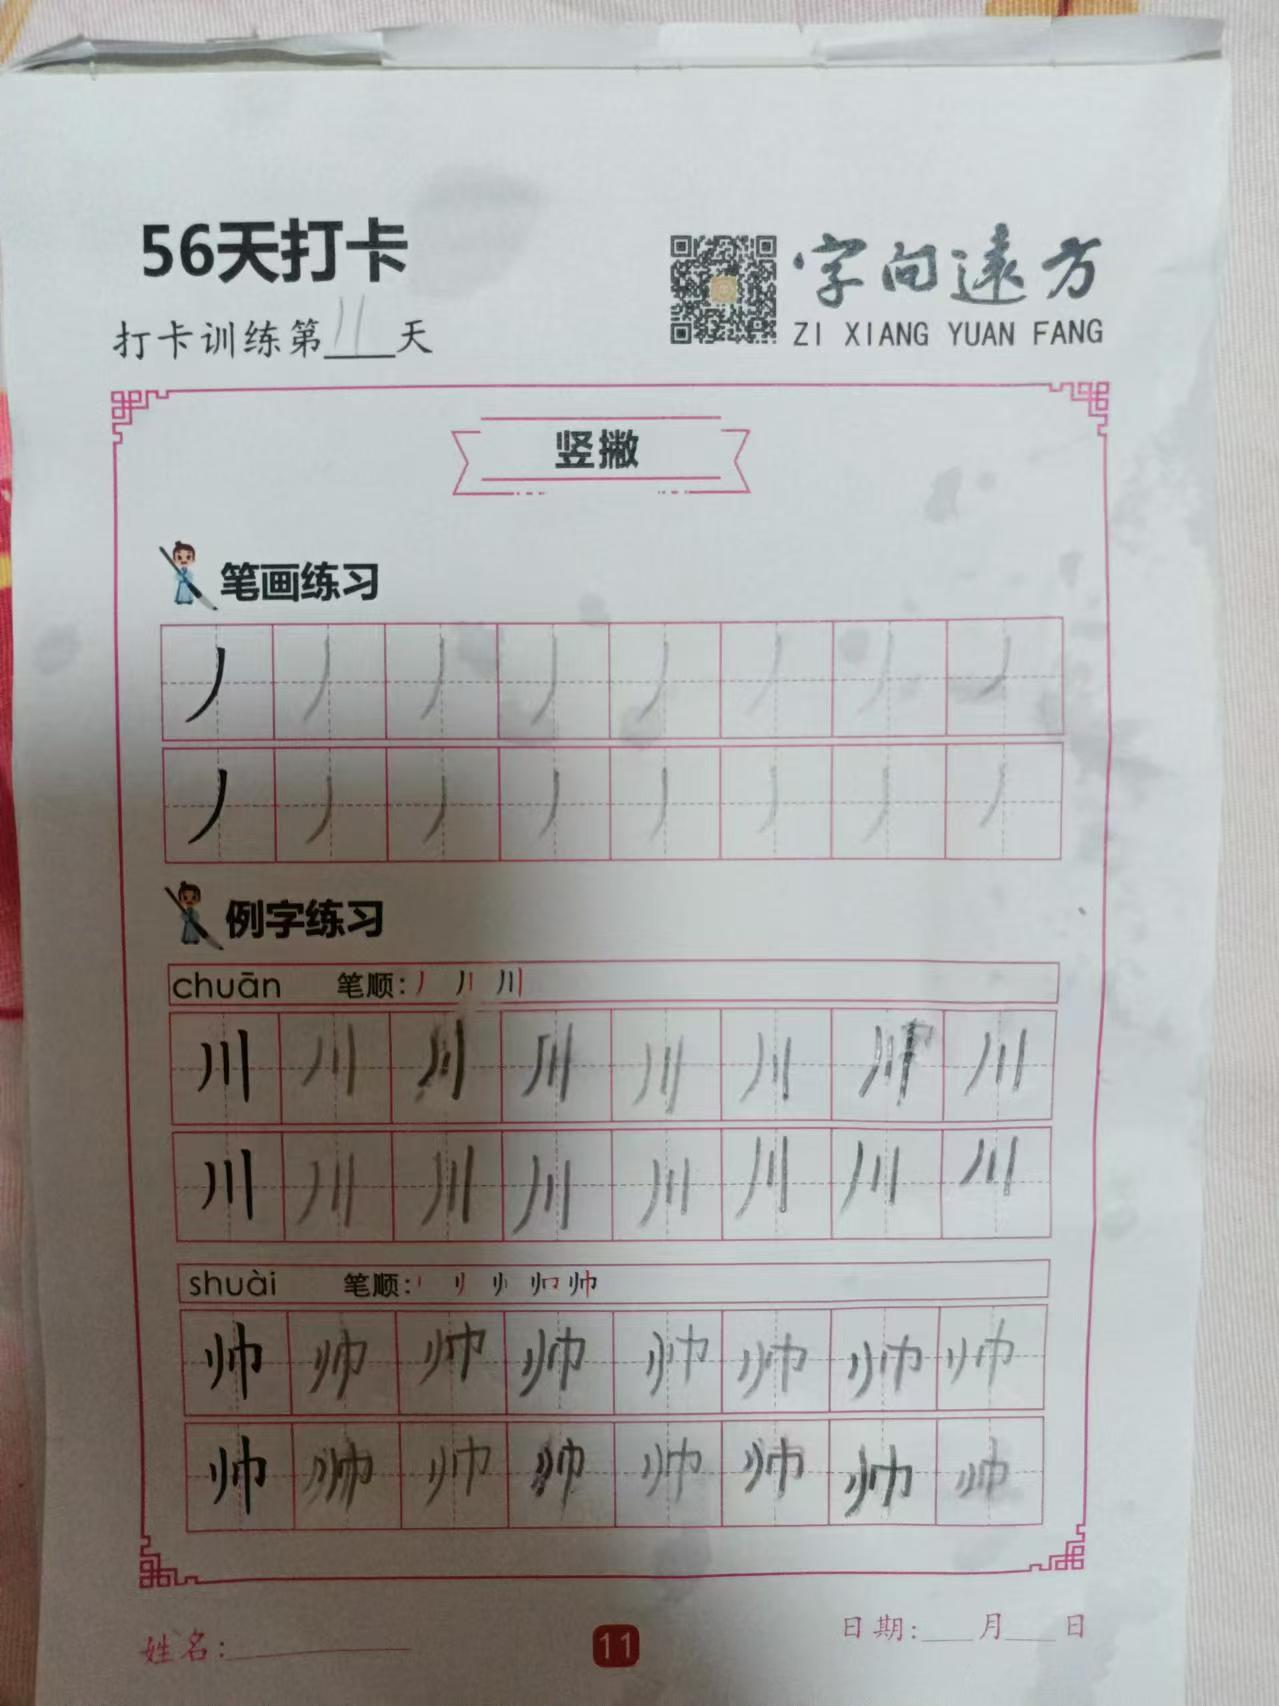 56天打卡
字向遠方
打卡训练第11天
ZI XIANG YUAN FANG
竖撇
笔画练习
丿 丿 丿 丿 丿 丿 丿 丿
丿 丿 丿 丿 丿 丿 丿 丿
例字练习
chuān 笔顺: 丿 川
川 川 川 川 川 川 川 川
川 川 川 川 川 川 川 川
shuài 笔顺: 帅
帅 帅 帅 帅 帅 帅 帅 帅
帅 帅 帅 帅 帅 帅 帅 帅
姓名:
11
日期: 月 日